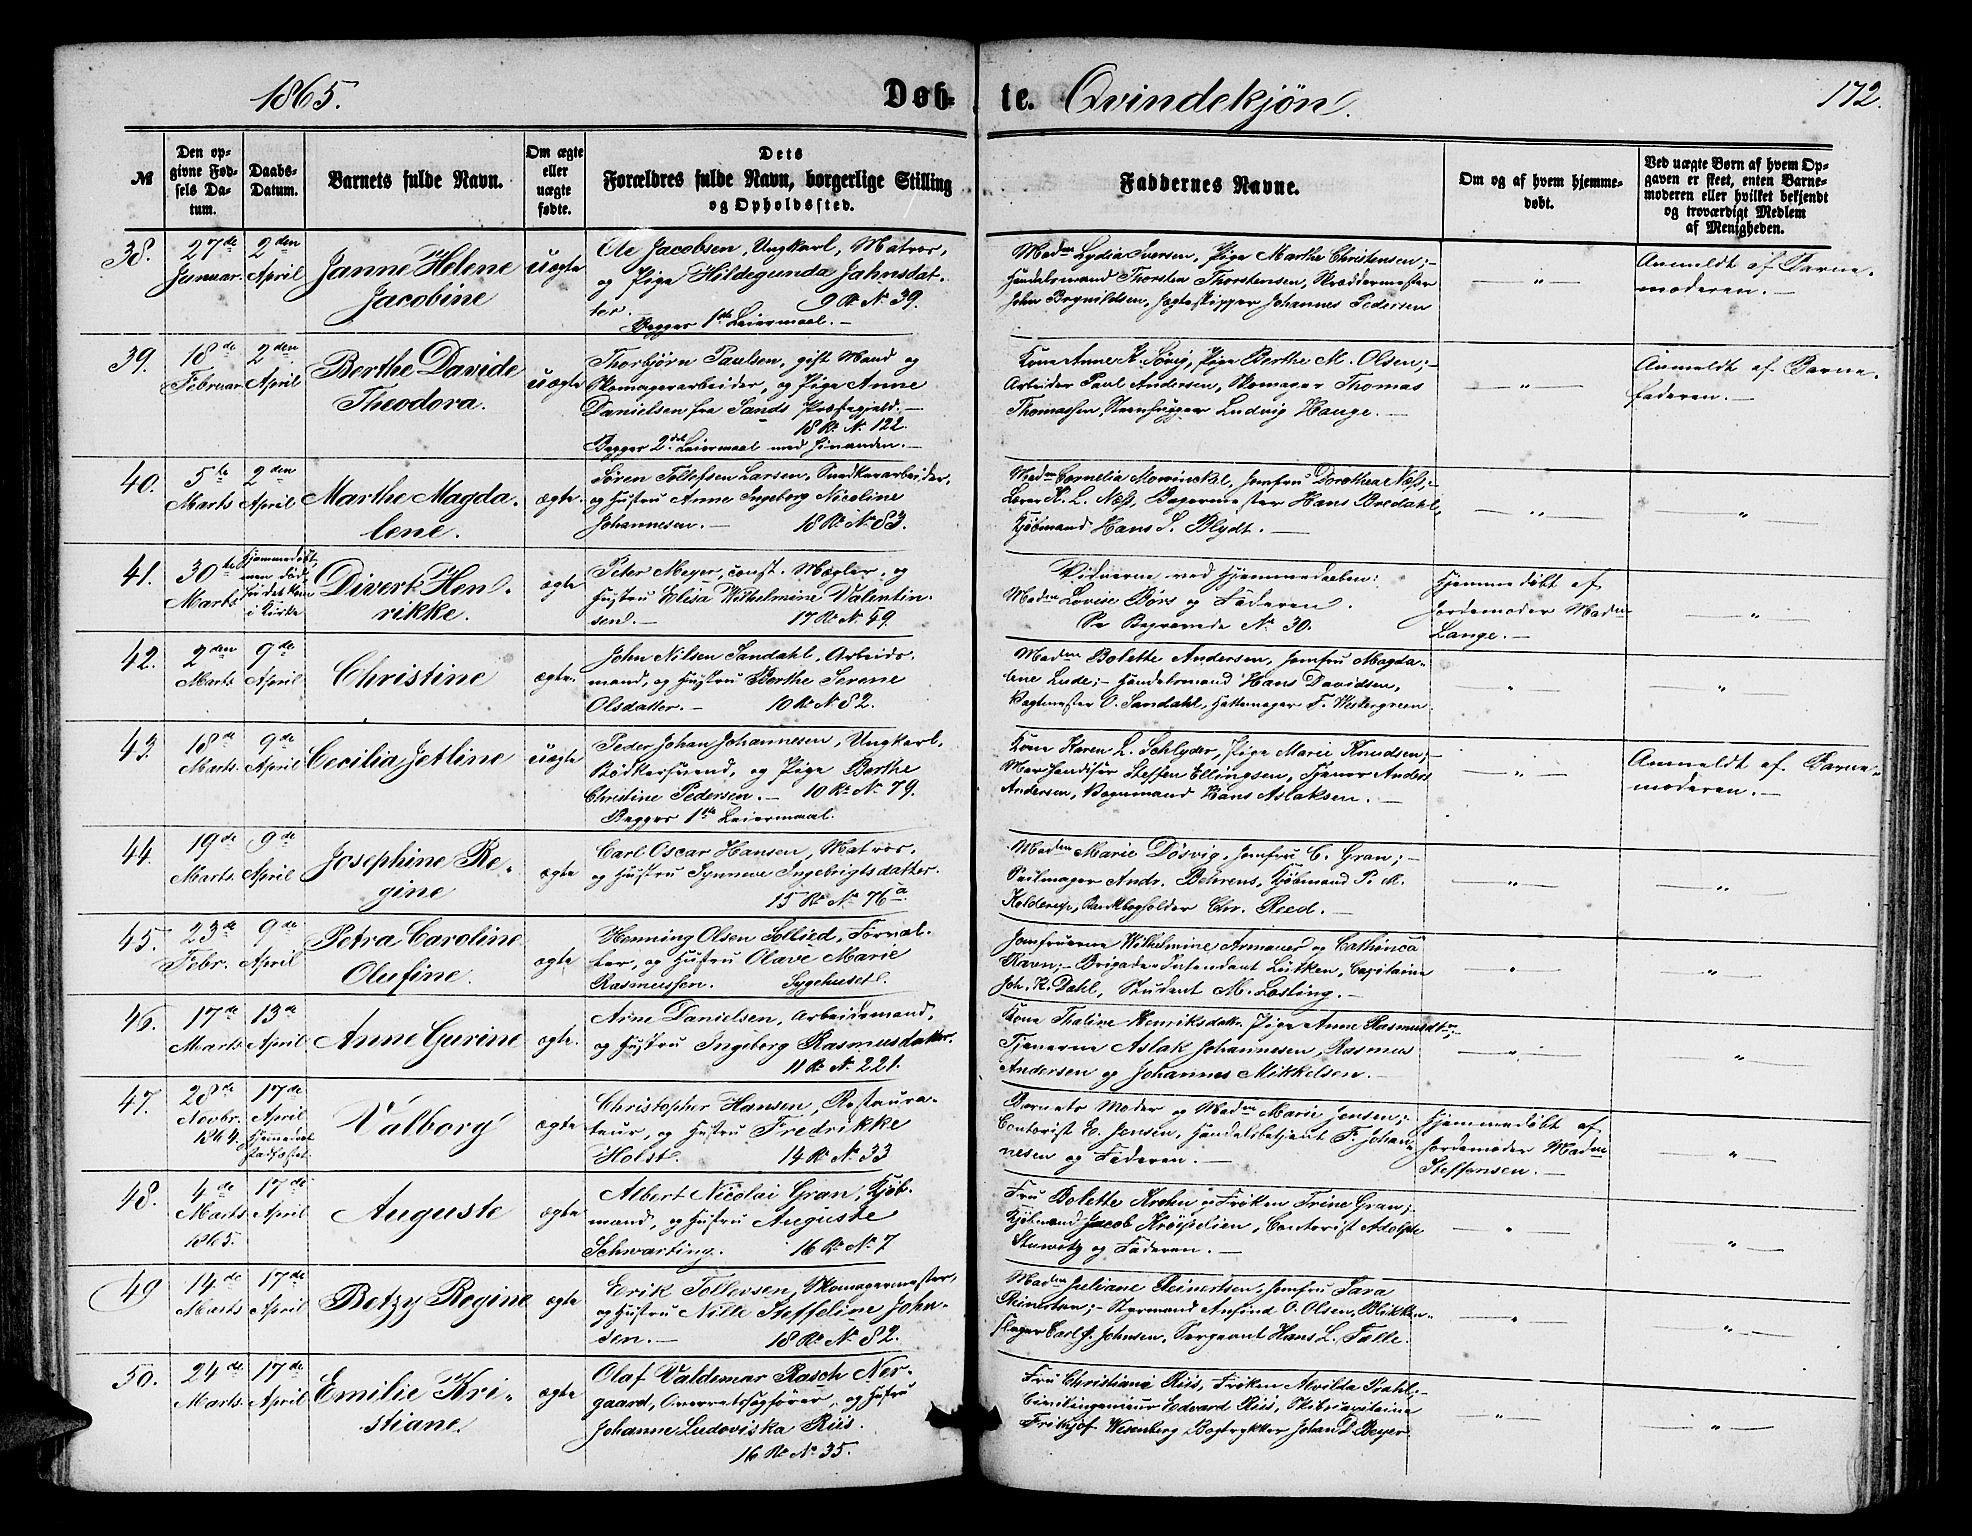 1865.
Døb-te. Qvindekjön.
172.
№
Den op-
givne Fød-
sels Da-
tum.
Daabs-
Datum.
Barnets fulde Navn.
Om ægte
eller
uægte
fødte.
Dets
Forældres fulde Navn, borgerlige Stilling
og Opholdssted.
Faddernes Navne.
Om og af hvem hjemme-
døbt.
Ved uægte Børn af hvem Op-
gaven er skeet, enten Barne-
moderen eller hvilket bekjendt
og troværdigt Medlem
af Menigheden.
38.
27de
Januar.
2den
April
Janne Helene
Jacobine
uægte
Ole Jacobsen, Ungkarl, Matros,
og Pige Hildegunda Jahnsdat-
ter. 9 R. N. 39.
Begges 1ste Leiermaal. —
Madm Lydia Iversen, Pige Marthe Christensen; —
Handelsmand Thorsten Thorstensen, Skræddermester
John Brynildsen, Jagteskipper Johannes Pedersen
— „ —
Anmeldt af Barne-
moderen. —
39.
18de
Februar
2den
April
Berthe Davide
Theodora.
uægte
Thorbjørn Paulsen, gift Mand og
Skomagerarbeider, og Pige Anne
Danielsen fra Sands Præstegjeld. —
18 R. N. 122.
Begges 2det Leiermaal med hinanden. —
Kone Anne K. Søvig, Pige Berthe M. Olsen; —
Arbeider Paul Andersen, Skomager Thomas
Thomassen, Steenhugger Ludvig Hauge. —
— „ —
Anmeldt af Barne-
faderen. —
40.
5te
Marts
2den
April
Marthe Magda-
lene.
ægte.
Søren Tollefsen Larsen, Snedkerarbeider,
og Hustru Anne Ingeborg Nicoline
Johannesen. — 18 R. N. 83.
Madm Cornelia Mowinckel, Jomfru Dorothea Næss, —
Lærer K. L. Næss, Bagermester Hans Bredahl,
Kjöbmand Hans S. Blydt. —
— „ —
— „ —
41.
30te
Marts
Hjemmedøbt,
men død
før det kom
i Kirke
Divert Hen-
rikke.
ægte
Peter Meyer, const. Mægler, og
Hustru Elisa Wilhelmine Valentin-
sen. — 17 R. N. 59.
Vidnerne ved Hjemmedaaben:
Madm Lovise Börs og Faderen.
Se Begravede No. 30.
Hjemmedöbt af
Jordemoder Madm
Lange. —
— „ —
42.
2den
Marts
9de
April
Christine
ægte.
John Nilsen Sandahl, Arbeids-
mand, og Hustru Berthe Serene
Olsdatter. — 10 R. N. 82.
Madm Bolette Andersen, Jomfru Magda-
lene Lude; — Handelsmand Hans Davidsen,
Vagtmester O. Sandahl, Hattemager F. Westergreen
— „ —
— „ —
43.
18de
Marts.
9de
April
Cecilia Jetline
uægte
Peder Johan Johannesen, Ungkarl,
Bödkersvend, og Pige Berthe
Christine Pedersen. — 10 R. N. 79.
Begges 1ste Leiermaal.
Kone Karen L. Schlyder, Pige Marie Knudsen; —
Marschandiser Steffen Ellingsen, Tjener Anders
Andersen, Vognmand Hans Aslaksen. —
— „ —
Anmeldt af Barne-
moderen. —
44.
19de
Marts.
9de
April
Josephine Re-
gine
ægte
Carl Oscar Hansen, Matros,
og Hustru Synneve Ingebrigtsdatter.
15 R. N. 76 a.
Madm Marie Dösvig, Jomfru C. Gran; —
Seilmager Andr. Behrens, Kjöbmand P. M.
Kolderup, Bankbogholder Chr. Reed. —
— „ —
— „ —
45.
23de
Febr.
9de
April
Petra Caroline
Olufine.
ægte
Henning Olsen Sollied, Forval-
ter, og Hustru Olave Marie
Rasmussen. Sygehuset.
Jomfruerne Wilhelmine Armauer og Cathinca
Ravn; — Brigade-Intendant Lütken, Capitaine
Joh. K. Dahl, Student M. Losting. —
— „ —
— „ —
46.
17de
Marts
13de
April
Anne Gurine
ægte.
Arne Danielsen, Arbeidsmand,
og Hustru Ingeborg Rasmusdatter.
11 R. N. 221.
Kone Thaline Henriksdatr. Pige Anne Rasmusdtr; —
Tjenerne Aslak Johannesen, Rasmus
Andersen og Johannes Mikkelsen. —
— „ —
— „ —
47.
28de
Novbr.
1864.
17de
April
Hjemedaab
stadfæstet
Valborg
ægte
Christopher Hansen, Restaura-
teur, og Hustru Fredrikke
Holst. 14 R. N. 33
Barnets Moder og Madm Marie Jensen; —
Contorist E. Jensen, Handelsbetjent F. Johan-
nesen og Faderen. —
Hjemmedöbt af
Jordemoder Madm
Steffensen. —
— „ —
48.
4de
Marts
1865.
17de
April
Auguste
ægte
Albert Nicolai Gran, Kjöb-
mand, og Hustru Auguste
Schwarting. 16 R. N. 7
Fru Bolette Krohn og Fröken Trine Gran; —
Kjöbmand Jacob Kröpelien, Contorist Adolph
Stuwitz og Faderen. —
— „ —
— „ —
49
14de
Marts
17de
April
Betzy Regine
ægte
Erik Tollevsen, Skomagermester,
og Hustru Nille Steffeline John-
sen. — 18 R. N. 82.
Madm Juliane Reinertsen, Jomfru Sara
Reinertsen; — Styrmand Anfind O. Olsen, Blikken-
slager Carl J. Johnsen, Sergeant Hans L. Talle.
— „ —
— „ —
50.
24de
Marts.
17de
April
Emilie Kri-
stiane.
ægte
Olaf Valdemar Rasch Ner-
gaard, Overretssagfører, og Hustru
Johanne Ludoviska Riis.
16 R. N. 35.
Fru Christiane Riis, Fröken Alvilda Prahl; —
Civilingenieur Edvard Riis, Skibscapitaine
Frithjof Wesenberg Bogtrykker Johan D. Beyer.
— „ —
— „ —